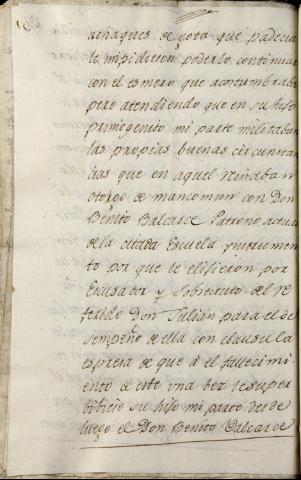 achaques de gota que padecia
le impidieron poderlo continuar
con el esmero que acostumbraba
pero atendiendo que en su hijo
primogenito mi parte militaban
las propias buenas circunstan
cias que en aquel reinaban
otorgo de mancomun con Don
Benito Balcarce Patrono actual
de la citada Escuela ynstrumen
to por que le elijieron por
Escusador y Sobstituto del re
ferido Don Julian para el de
sempeño de ella con clausula
espresa de que a el fallecimi
ento de este una bez le super
bibiese su hijo mi parte desde
luego el Don Benito Valcarce